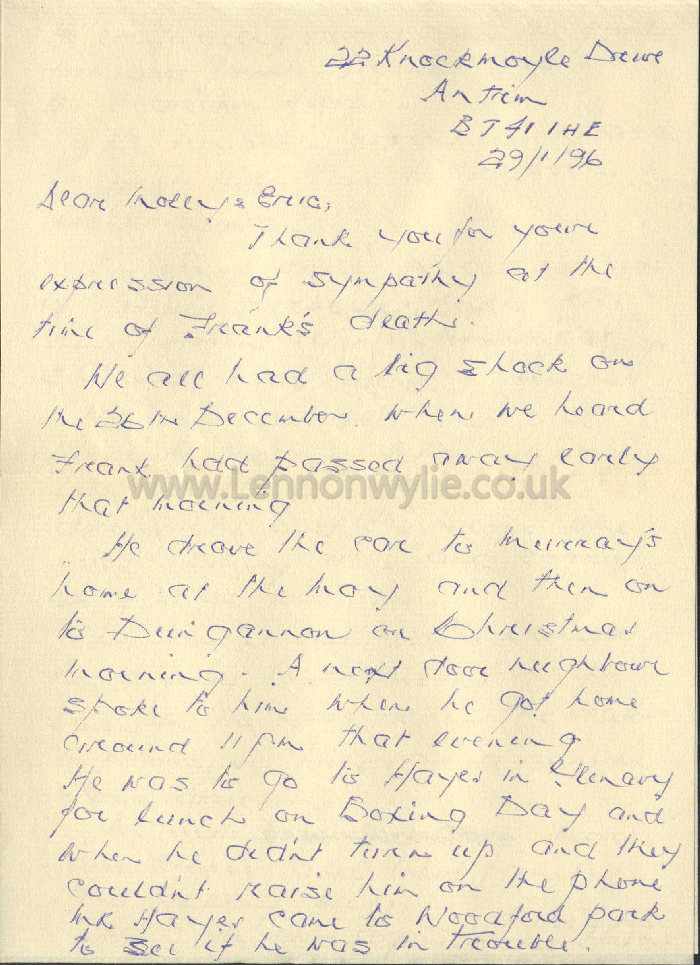 22 Knockmoyle Drive
Antrim
BT41 1HE
29/1/96
Dear Molly & Eric,
Thank you for your
expression of sympathy at the
time of Frank's death.
We all had a big shock on
the 26th December when we heard
Frank had passed away early
www.Lennonwylie.co.uk
that morning
He drove the car to Murray's
home at the Moy and then on
to Dungannon on Christmas
morning. A next door neighbour
spoke to him when he got home
around 11pm that evening
He was to go to Hayes in Glenavy
for lunch on Boxing Day and
when he didn't turn up and they
couldn't raise him on the phone
Mr Hayes came to Woodford park
to see if he was in trouble.